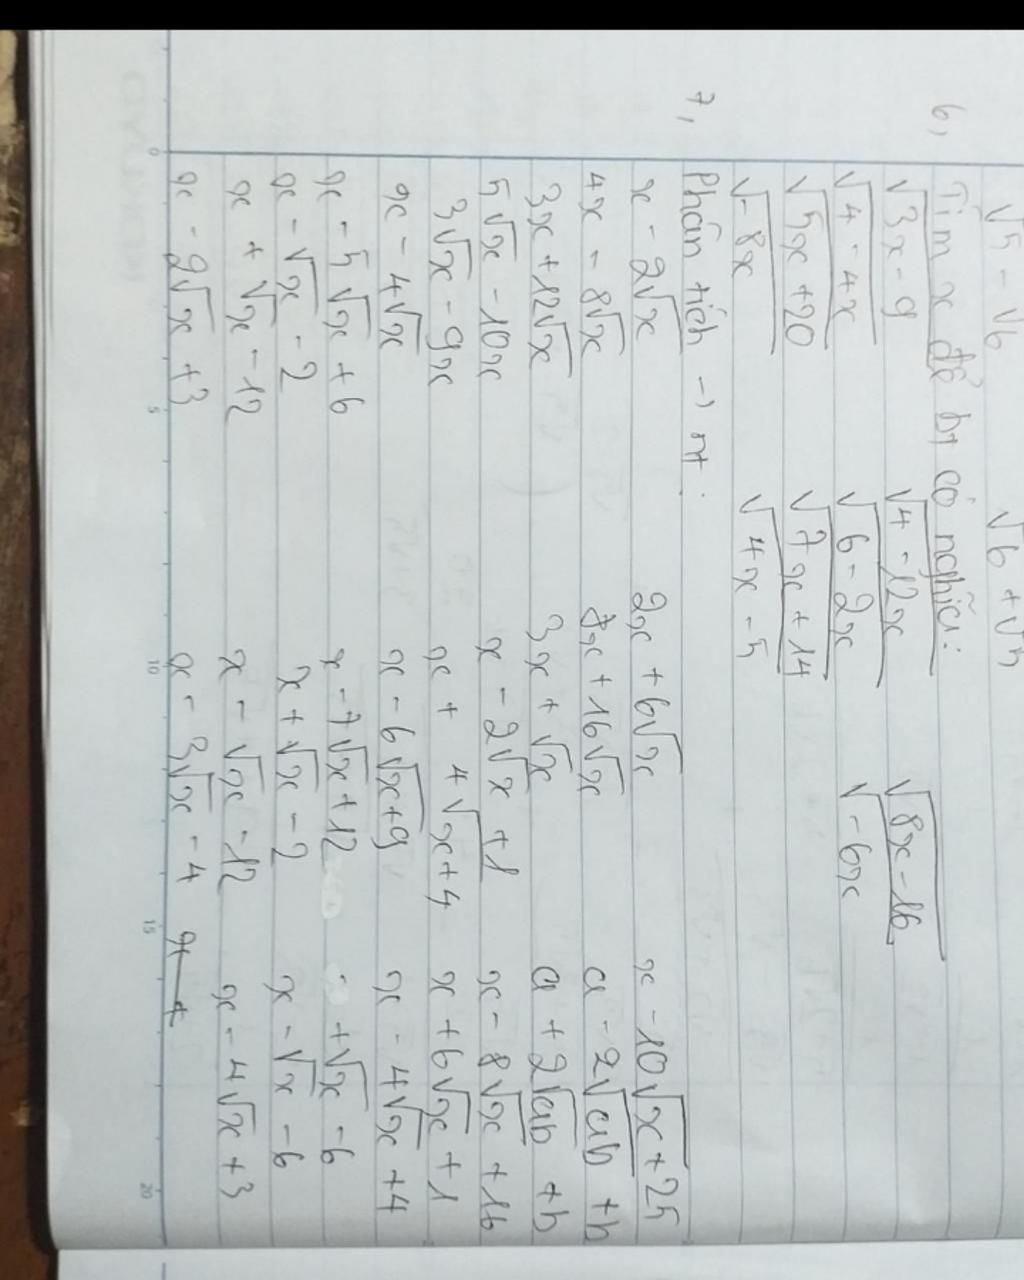 √5 - √6 √6 + √5
6, Tìm x để bt có nghĩa:
√3x-9 √4-12x √8x-16
√4-4x √6-2x √-6x
√5x+20 √7x+14
√-8x √4x-5
7, Phân tích → nt:
x - 2√x 2x + 6√x x - 10√x + 25
4x - 8√x 8x + 16√x a - 2√ab + b
3x + 12√x 3x + √x a + 2√ab + b
5√x - 10x x - 2√x + 1 x - 8√x + 16
3√x - 9x x + 4√x + 4 x + 6√x + 1
x - 4√x x - 6√x + 9 x - 4√x + 4
x - 5√x + 6 x - 7√x + 12 + √x - 6
x - √x - 2 x + √x - 2 x - √x - 6
x + √x - 12 x - √x - 12 x - 4√x + 3
x - 2√x + 3 x - 3√x - 4
0 5 10 15 20